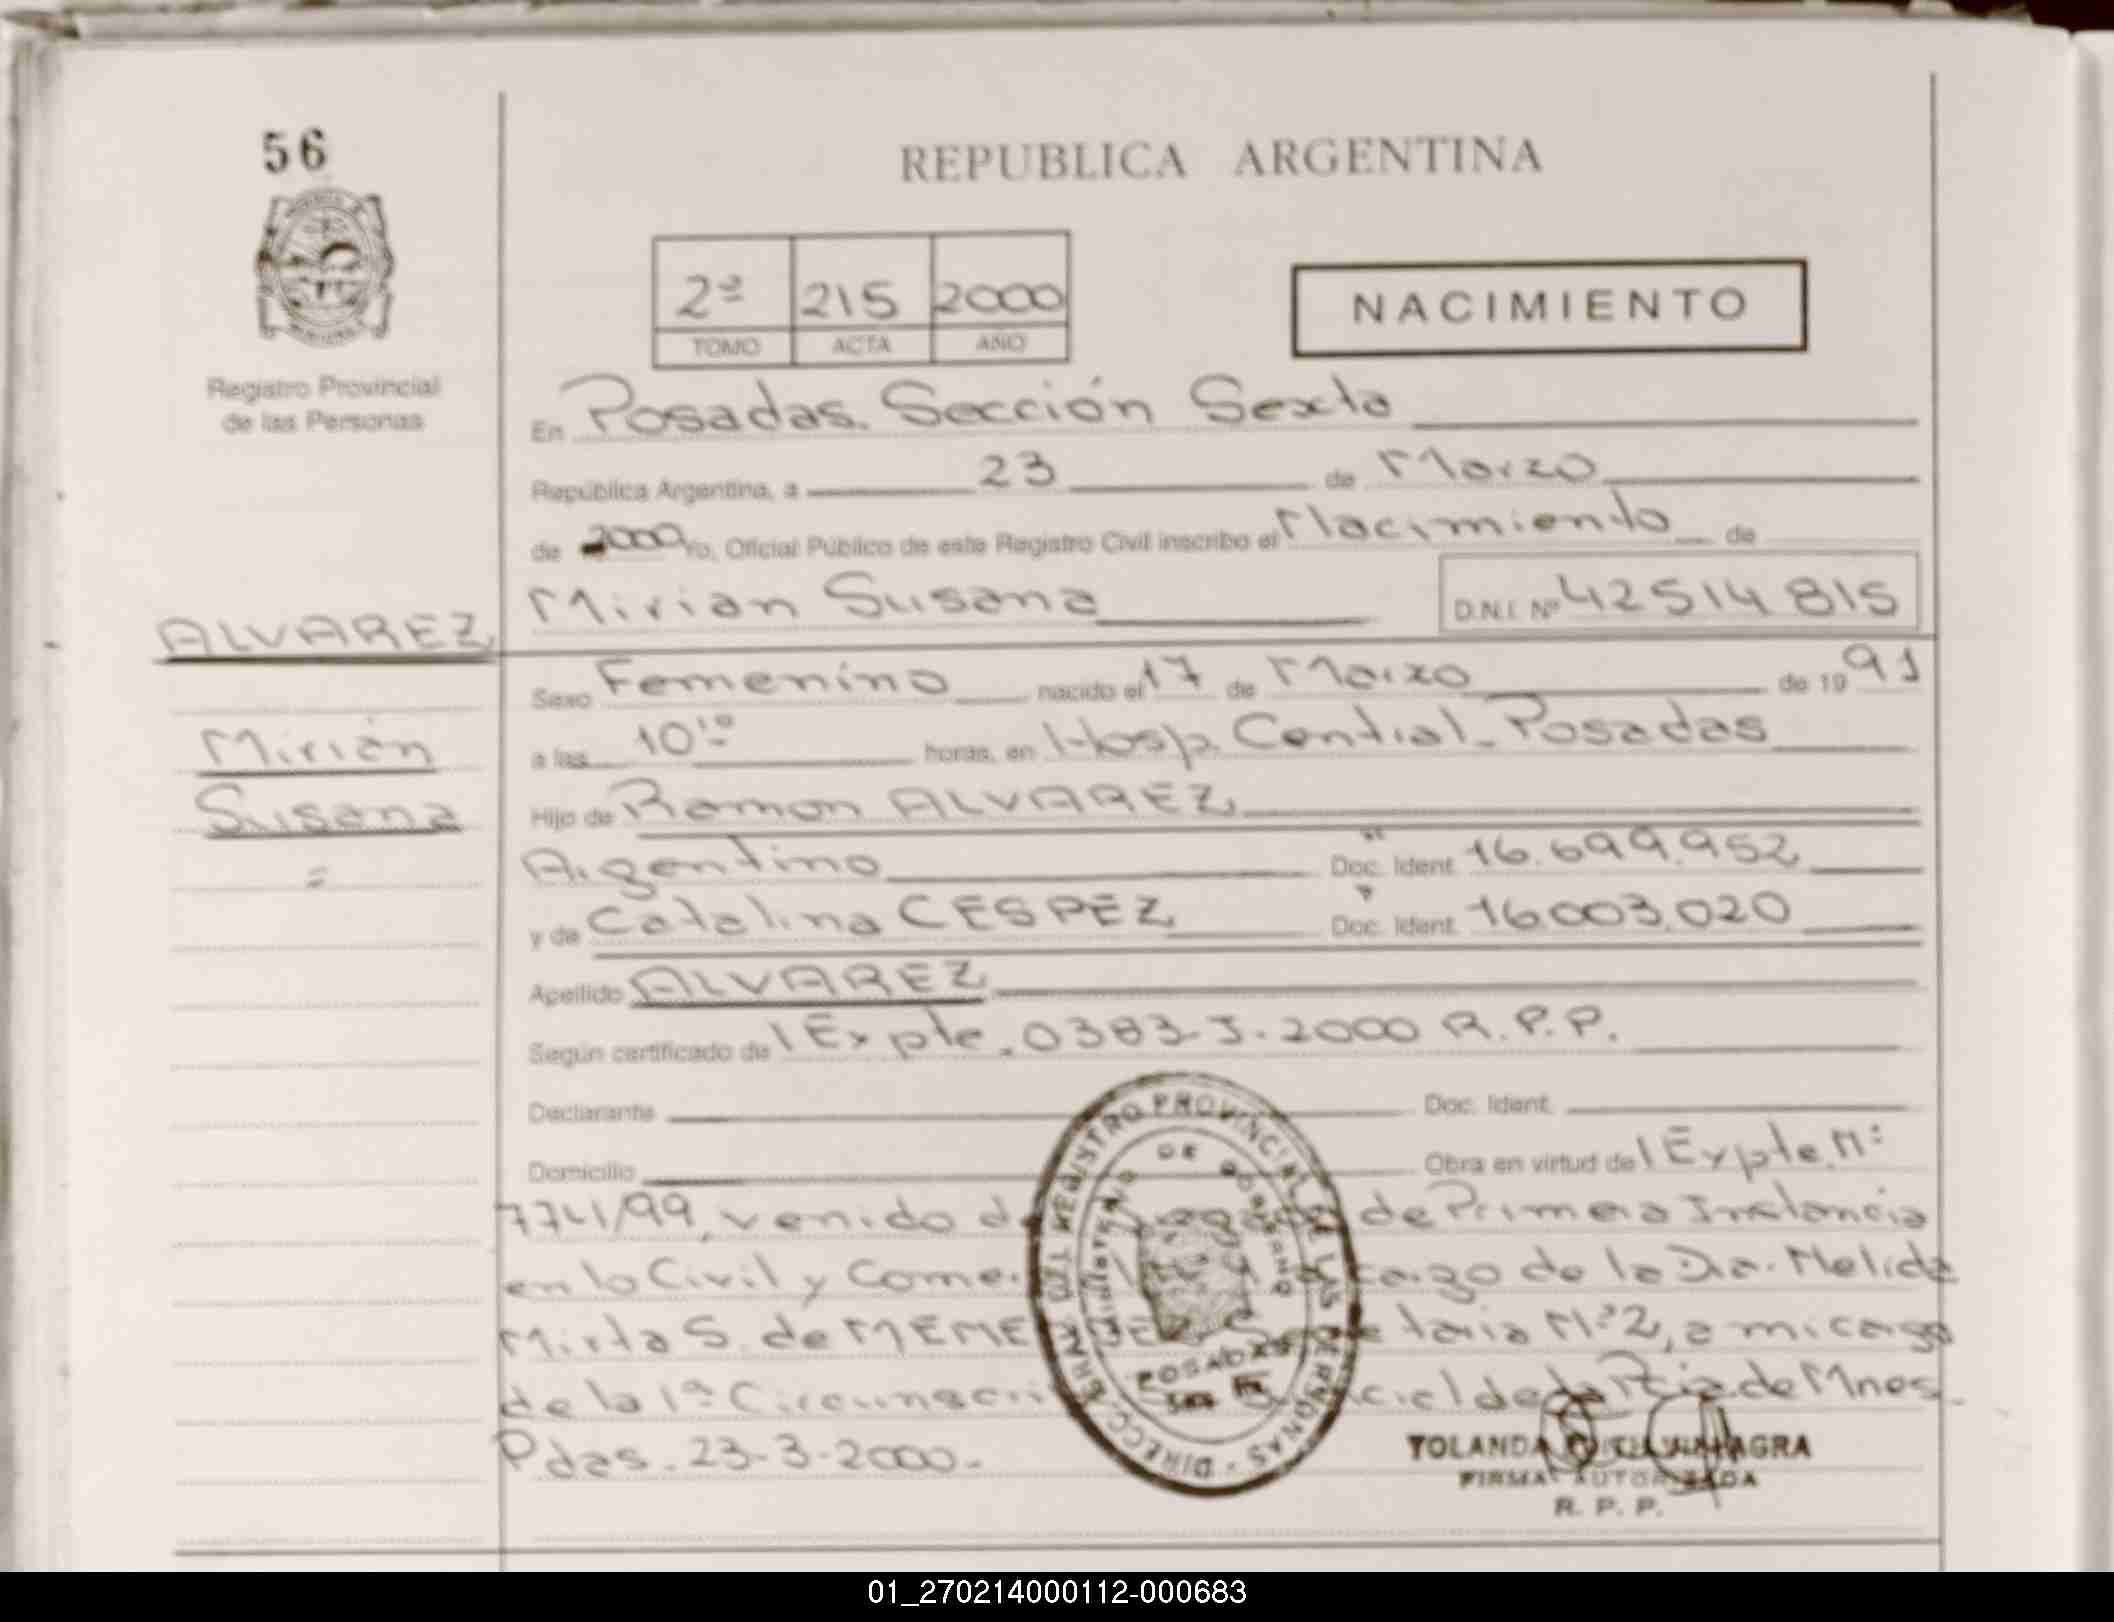 56
REPUBLICA ARGENTINA
2º 215 2000
TOMO ACTA AÑO
NACIMIENTO
Registro Provincial
de las Personas
En Posadas. Sección Sexta
República Argentina, a 23 de Marzo
de 2000 Yo, Oficial Público de este Registro Civil inscribo el Nacimiento de
Mirian Susana D.N.I. Nº 42514815
ALVAREZ
Mirián
Susana
=
Sexo Femenino nacido el 17 de Marzo de 19 91
a las 10¹⁰ horas, en Hosp. Central - Posadas
Hijo de Ramon ALVAREZ
Argentino Doc. Ident. 16.699.952
y de Catalina CESPEZ Doc. Ident. 16.003.020
Apellido ALVAREZ
Según certificado de l Expte. 0383-J-2000 R.P.P.
Declarante Doc. Ident.
Domicilio Obra en virtud de l Expte. Nº
venido de Primera Instancia
en lo Civil y cargo de la Dra. Nelida
Mirta S. de Nº 2, a mi cargo
de la 1ª de la Pcia de Mnes.
Pdas. 23-3-2000.-
DIRECC. GRAL. DEL REGISTRO PROVINCIAL DE LAS PERSONAS
MINISTERIO DE GOBIERNO
POSADAS
YOLANDA VILLAGRA
FIRMA AUTORIZADA
R. P. P.
01_270214000112-000683